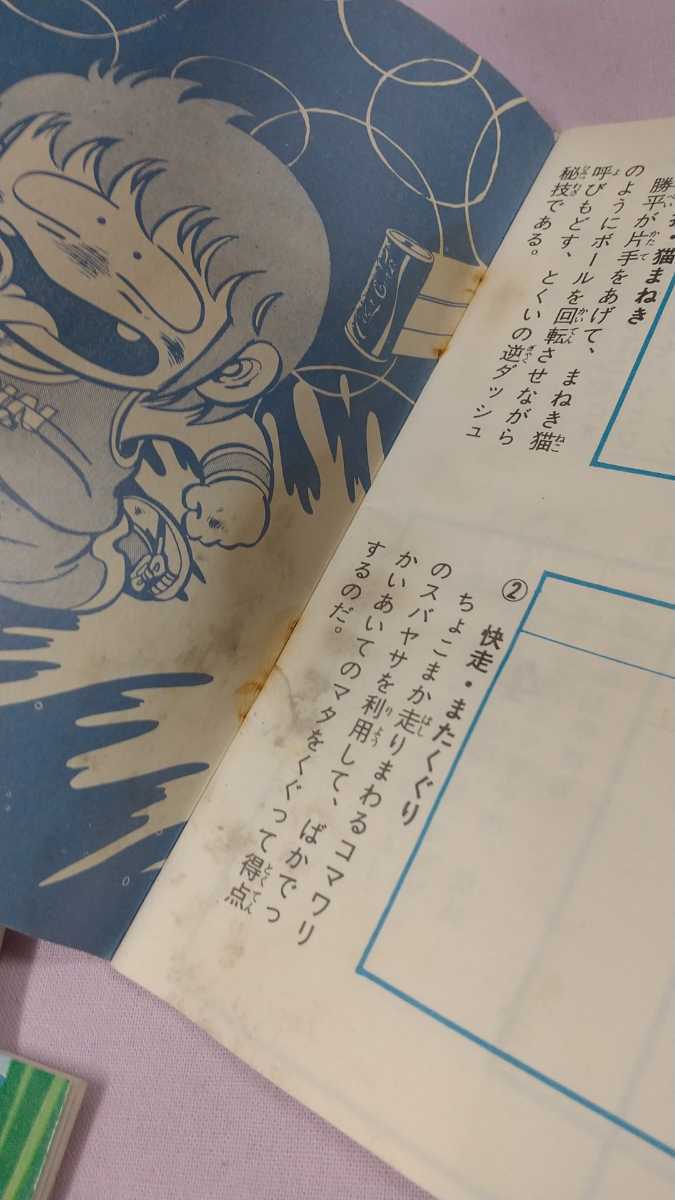 猫まねき
勝平が片手をあげて、まねき猫
のようにボールを回転させながら
呼びもどす、とくいの逆ダッシュ
秘技である。
② 快走・またくぐり
ちょこまか走りまわるコマワリ
のスバヤサを利用して、ばかでっ
かいあいてのマタをくぐって得点
するのだ。